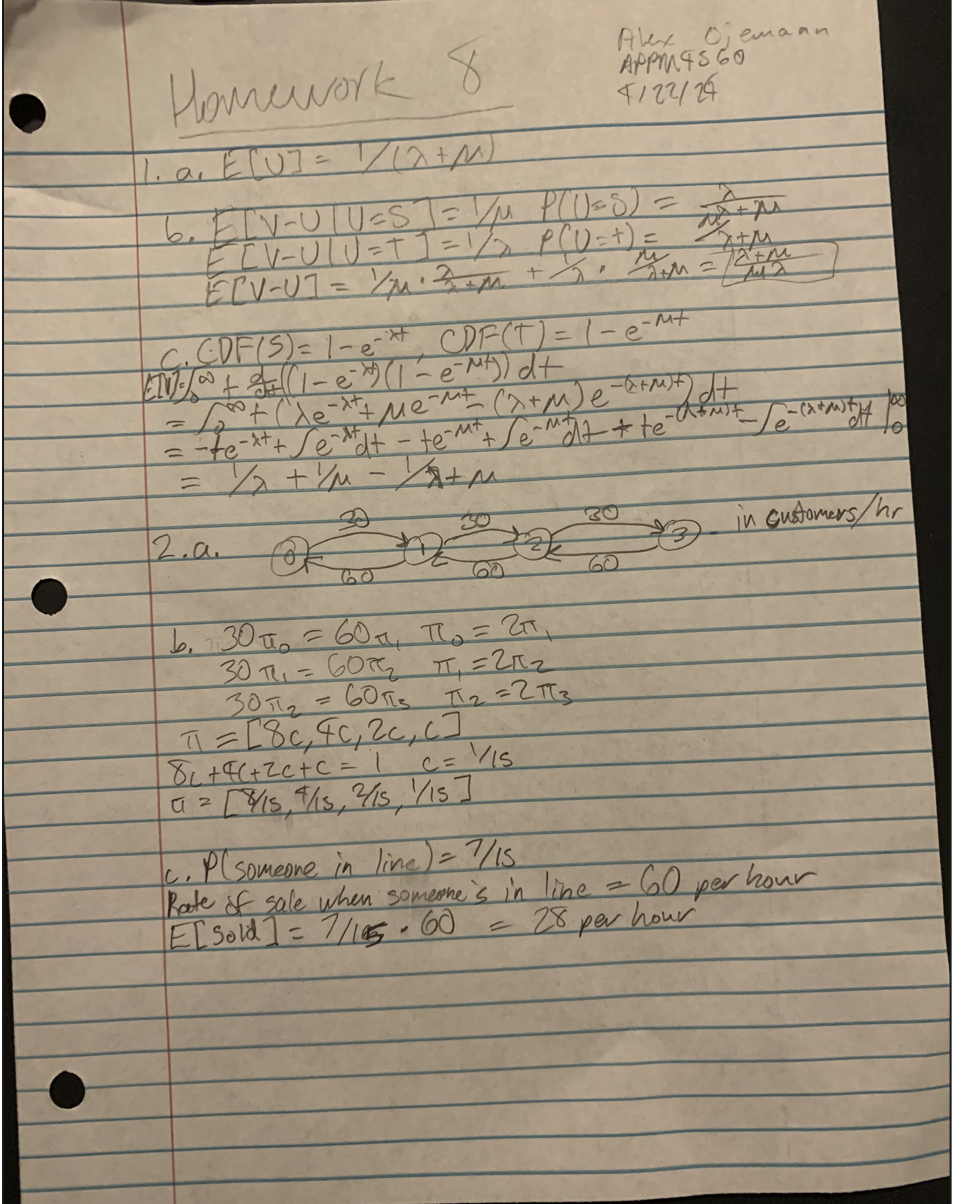 Alex Ojemann
Homework 8
APPM4560
4/22/24
1. a. E[U] = 1/(λ+μ)
b. E[V-U|U=S] = 1/μ P(U=S) = λ/λ+μ
E[V-U|U=T] = 1/λ P(U=T) = μ/λ+μ
E[V-U] = 1/μ · λ/λ+μ + 1/λ · μ/λ+μ = λ+μ/μλ
c. CDF(S) = 1-e^-λt, CDF(T) = 1-e^-μt
E[V] = ∫₀^∞ t d/dt((1-e^-λt)(1-e^-μt)) dt
= ∫₀^∞ t(λe^-λt + μe^-μt - (λ+μ)e^-(λ+μ)t) dt
= -te^-λt + ∫e^-λt dt - te^-μt + ∫e^-μt dt + te^-(λ+μ)t - ∫e^-(λ+μ)t dt |₀^∞
= 1/λ + 1/μ - 1/λ+μ
30 30 30 in customers/hr
2. a. 0 1 2 3
60 60 60
b. 30π₀ = 60π₁ π₀ = 2π₁
30π₁ = 60π₂ π₁ = 2π₂
30π₂ = 60π₃ π₂ = 2π₃
π = [8c, 4c, 2c, c]
8c+4c+2c+c = 1 c = 1/15
π = [8/15, 4/15, 2/15, 1/15]
c. P(someone in line) = 7/15
Rate of sale when someone's in line = 60 per hour
E[Sold] = 7/15 · 60 = 28 per hour